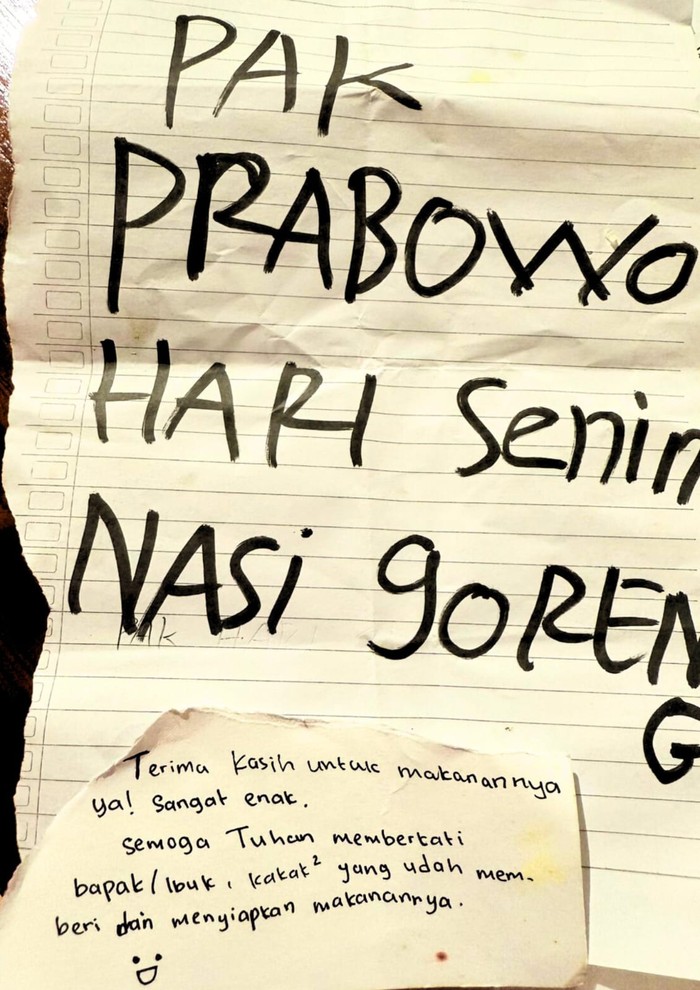 PAK
PRABOWO
HARI Senin
NASi gOREN
G
Terima kasih untuk makanannya
ya! Sangat enak.
semoga Tuhan memberkati
bapak/ibuk, kakak² yang udah mem-
beri dan menyiapkan makanannya.